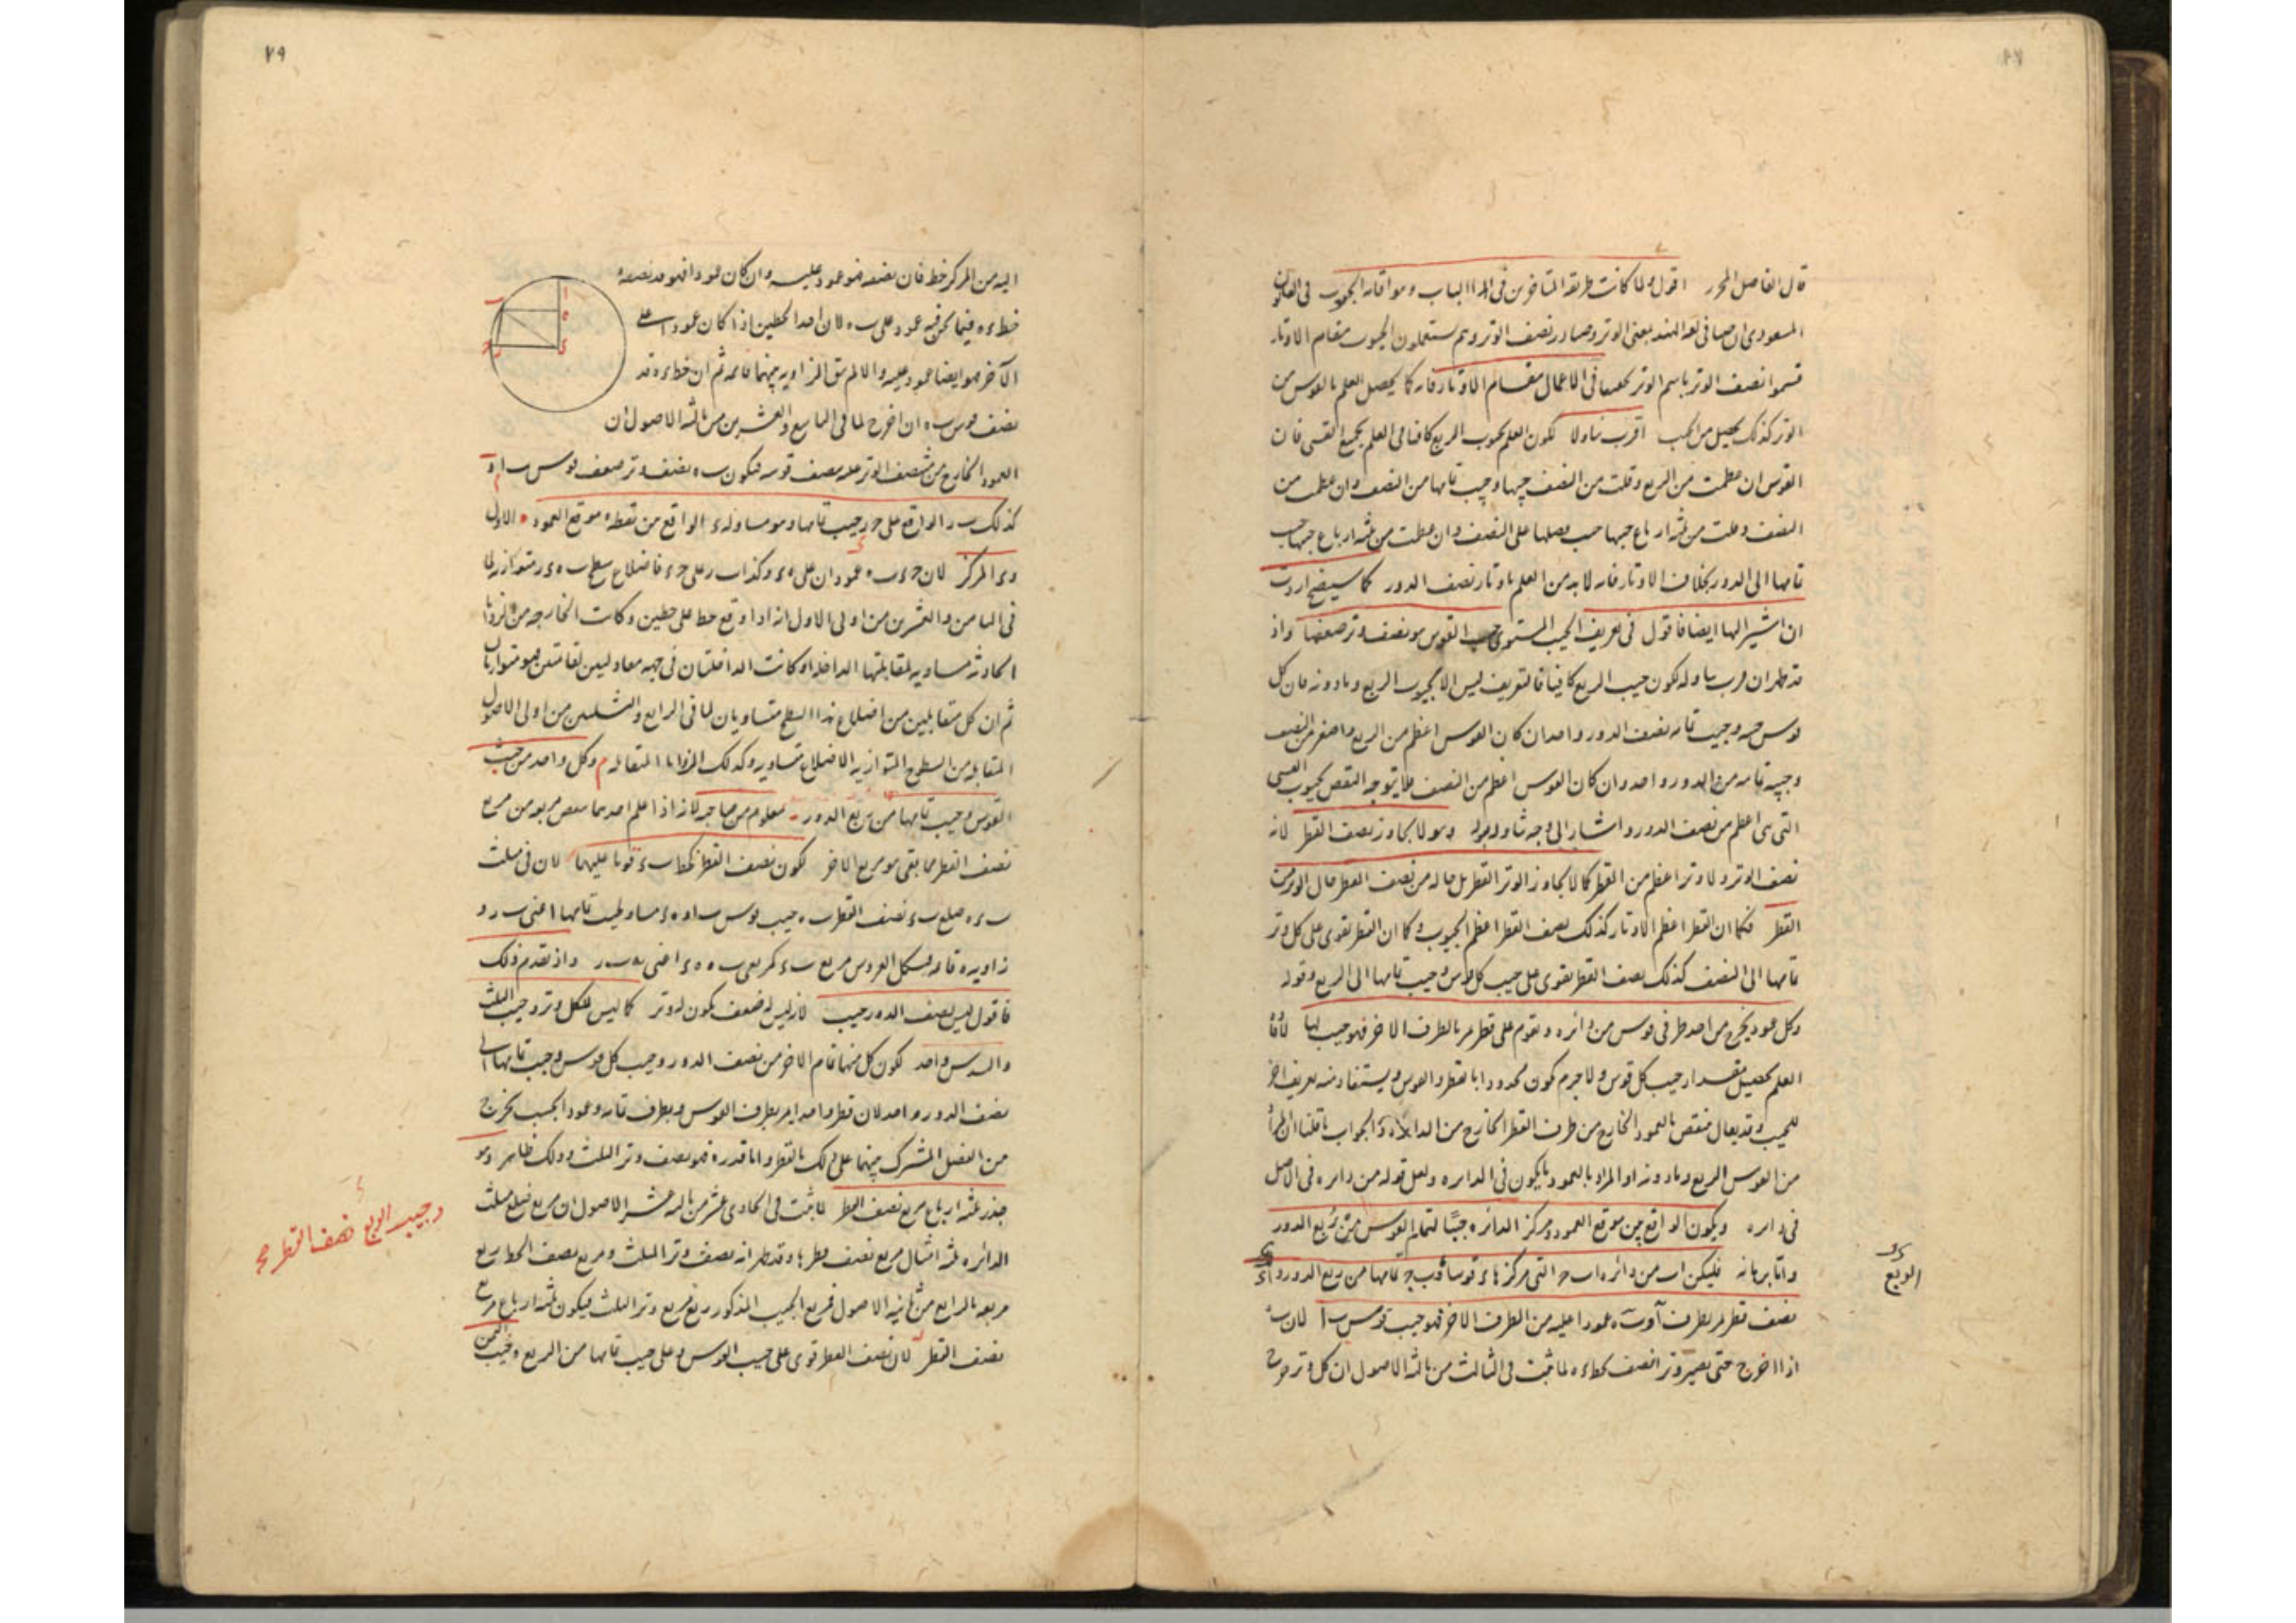 قال الفاضل المحرر اقول ولما كانت طريقة المتاخرين فى هذا الباب
المسعودى ان فى لغة الهند بمعنى الوتر وصار نصف الوتر وهم يستعملون الجيوب مقام الاوتار
فسموا نصف الوتر باسم الوتر فى الاعمال مقام الاوتار فانه كما يحصل العلم بالقوس من
الوتر كذلك يحصل من الجيب اقرب تناولا لكون العلم بجيوب الربع كافيا فى العلم بجميع القسى فان
القوس ان عظمت من الربع وقلت من النصف جيبها وجيب تمامها من النصف وان عظمت من
النصف وقلت من ثلثة ارباع جيبها جيب فضلها على النصف وان عظمت من ثلثة ارباع جيبها جيب
تمامها الى الدور بخلاف الاوتار فانه لا بد من العلم باوتار نصف الدور كما سيتضح اردت
ان اشير اليها ايضا فاقول فى تعريف الجيب المستوى جيب القوس هو نصف وتر ضعفها واذ
قد ظهر ان قرب تناوله لكون جيب الربع كافيا فالتعريف ليس الا لجيوب الربع وما دونه فان كل
قوس جيبه وجيب تمامه من نصف الدور واحد ان كان القوس اعظم من الربع واصغر من النصف
وجيبه تمامه من الدور واحد وان كان القوس اعظم من النصف فلا يتوجه النقض بجيوب القسى
التى هى اعظم من نصف الدور واشار الى وجه تناوله بقوله وهو لا يجاوز نصف القطر لانه
نصف الوتر ولا وتر اعظم من القطر كما لا يجاوز الوتر القطر بل حاله من نصف القطر حال الوتر من
القطر فكما ان القطر اعظم الاوتار كذلك نصف القطر اعظم الجيوب وكما ان القطر يقوى على كل وتر
تمامها الى النصف كذلك نصف القطر يقوى على جيب كل قوس وجيب تمامها الى الربع وقوله
وكل عمود يخرج من احد طرفى قوس من دائرة ويقوم على قطر مر بالطرف الاخر فهو جيب لها
العلم بتحصيل مقدار جيب كل قوس ولا جرم كون محدودا بالقطر والقوس ويستفاد منه تعريف اخر
للجيب وقد يقال منتقض بالعمود الخارج من طرف القطر الخارج من الدائرة والجواب
من القوس الربع وما دونه او المراد بالعمود ما يكون فى الدائرة ولعل قوله من دائرة فى الاصل
فى دائرة ويكون الواقع بين موقع العمود ومركز الدائرة جيبا لتمام القوس من ربع الدور
واما برهانه فليكن اب من دائرة اب ح التى مركزها ء قوسا وب ح تمامها من ربع الدور و اء
نصف قطر مر بطرف آ و ب ه عمودا عليه من الطرف الاخر فهو جيب قوس ب ا لان ب ه
اذا اخرج حتى يصير وترا نصف بخط ء ه لما ثبت فى الثالث من ثالثة الاصول ان كل وتر خرج
الربع
٧٩
اليه من المركز خط فان نصفه فهو عمود عليه وان كان عمودا فهو قد نصفه
خط ء ه فيما نحن فيه عمود على ب ه لان احد الخطين اذا كان عمودا على
الآخر فهو ايضا عمود عليه والا لم يبق الزاوية بينهما قائمة ثم ان خط ء ه قد
نصف قوس ب ه ان اخرج لما فى التاسع والعشرين من ثالثة الاصول ان
العمود الخارج من منتصف الوتر عليه ينصف قوسه فيكون ب ه نصف وتر ضعف قوس ب ا و
كذلك ب ر الواقع على ح ء جيب تمامها وهو مساو له ء الواقع من نقطة ه موقع العمود الاول
و ء المركز لان ح ء ب ه عمودان على ه ء وكذا ب ر على ح ء فاضلاع سطح ب ه ء ر متوازية لما
فى الثامن والعشرين من اولى الاصول انه اذا وقع خط على خطين وكانت الخارجة من الزوايا
الحادثة مساوية لمقابلتها الداخلة او كانت الداخلتان فى جهة معادلتين لقائمتين فهما متوازيان
ثم ان كل متقابلين من اضلاع هذا السطح متساويان لما فى الرابع والثلثين من اولى الاصول
المتقابلة من السطوح المتوازية الاضلاع متساوية وكذلك الزوايا المتقابلة وكل واحد من جيب
القوس وجيب تمامها من ربع الدور معلوم من صاحبه لانه اذا علم احدهما نقص مربعه من مربع
نصف القطر فما بقى هو مربع الاخر لكون نصف القطر كخط ب ء قويا عليهما لان فى مثلث
ب ء ه ضلع ب ء نصف القطر ب ه جيب قوس ب ا و ه ء مساو لجيب تمامها اعنى ب ر و
زاوية ه قائمة فبشكل العروس مربع ب ء كمربعى ب ه ه ء اعنى ب ر واذ تقدم ذلك
فاقول ليس لنصف الدور جيب لانه ليس له ضعف يكون له وتر كما ليس للكل وتر وجيب الثلث
والسدس واحد لكون كل منهما تمام الاخر من نصف الدور وجيب كل قوس وجيب تمامها الى
نصف الدور واحد لان قطرا واحدا يمر بطرف القوس وبطرف تمامه وعمود الجيب يخرج
من الفصل المشترك بينهما على ذلك القطر واما قدره فهو نصف وتر الثلث وذلك ظاهر وهو
جذر ثلثة ارباع مربع نصف القطر لما ثبت فى الحادى عشر من ثالثة عشر الاصول ان مربع ضلع مثلث
الدائرة ثلثة امثال مربع نصف قطرها وقد ظهر انه نصف وتر الثلث ومربع نصف الخط ربع
مربعه بالرابع من ثانية الاصول فمربع الجيب المذكور ربع مربع وتر الثلث فيكون ثلثة ارباع مربع
نصف القطر لان نصف القطر قوى على جيب القوس وعلى جيب تمامها من الربع وجيب الثمن
وجيب الربع نصف القطر صح